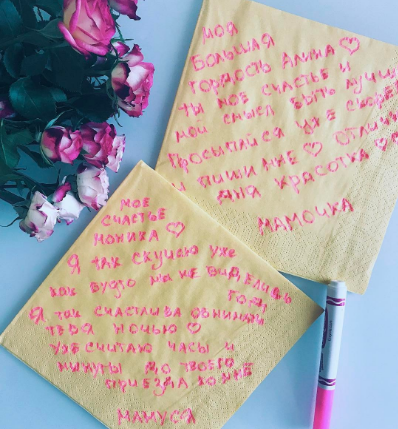 МОЯ
БОЛЬШАЯ
ГОРДОСТЬ АЛИНА ♡
ТЫ МОЕ СЧАСТЬЕ И
МОЙ СМЫСЛ БЫТЬ ЛУЧШ
ПРОСЫПАЙСЯ УЖЕ СКОРЕ
И ПИШИ МНЕ ♡ ОТЛИЧН
ДНЯ КРАСОТКА ♡
МАМОЧКА
МОЕ
СЧАСТЬЕ
МОНИКА ♡
Я ТАК СКУЧАЮ УЖЕ
КАК БУДТО МЫ НЕ ВИДЕЛИСЬ
ГОД
Я ТАК СЧАСТЛИВА ОБНИМАТЬ
ТЕБЯ НОЧЬЮ ♡
УЖЕ СЧИТАЮ ЧАСЫ И
МИНУТЫ ДО ТВОЕГО
ПРИЕЗДА КО МНЕ
МАМУСЯ